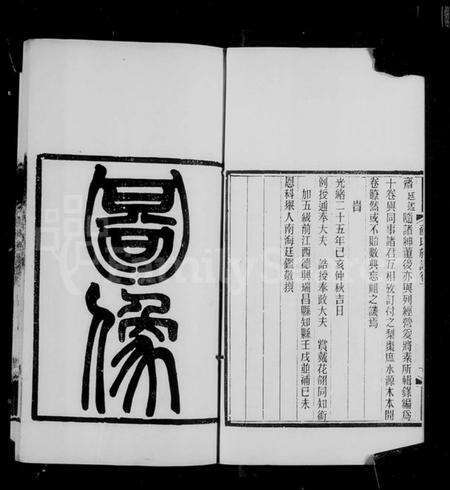 齋廷鑑隨諸紳董後亦與列經營爰將素所輯錄編爲
十卷與同事諸君互相攷訂付之梨棗庶水源木本開
卷瞭然或不貽數典忘祖之譏焉
旹
光緒二十五年己亥仲秋吉日
例授通奉大夫 誥授奉政大夫 賞戴花翎同知銜
加五級前江西德興瑞昌縣知縣壬戌並補己未
恩科舉人南海廷鑑敬撰
圖像